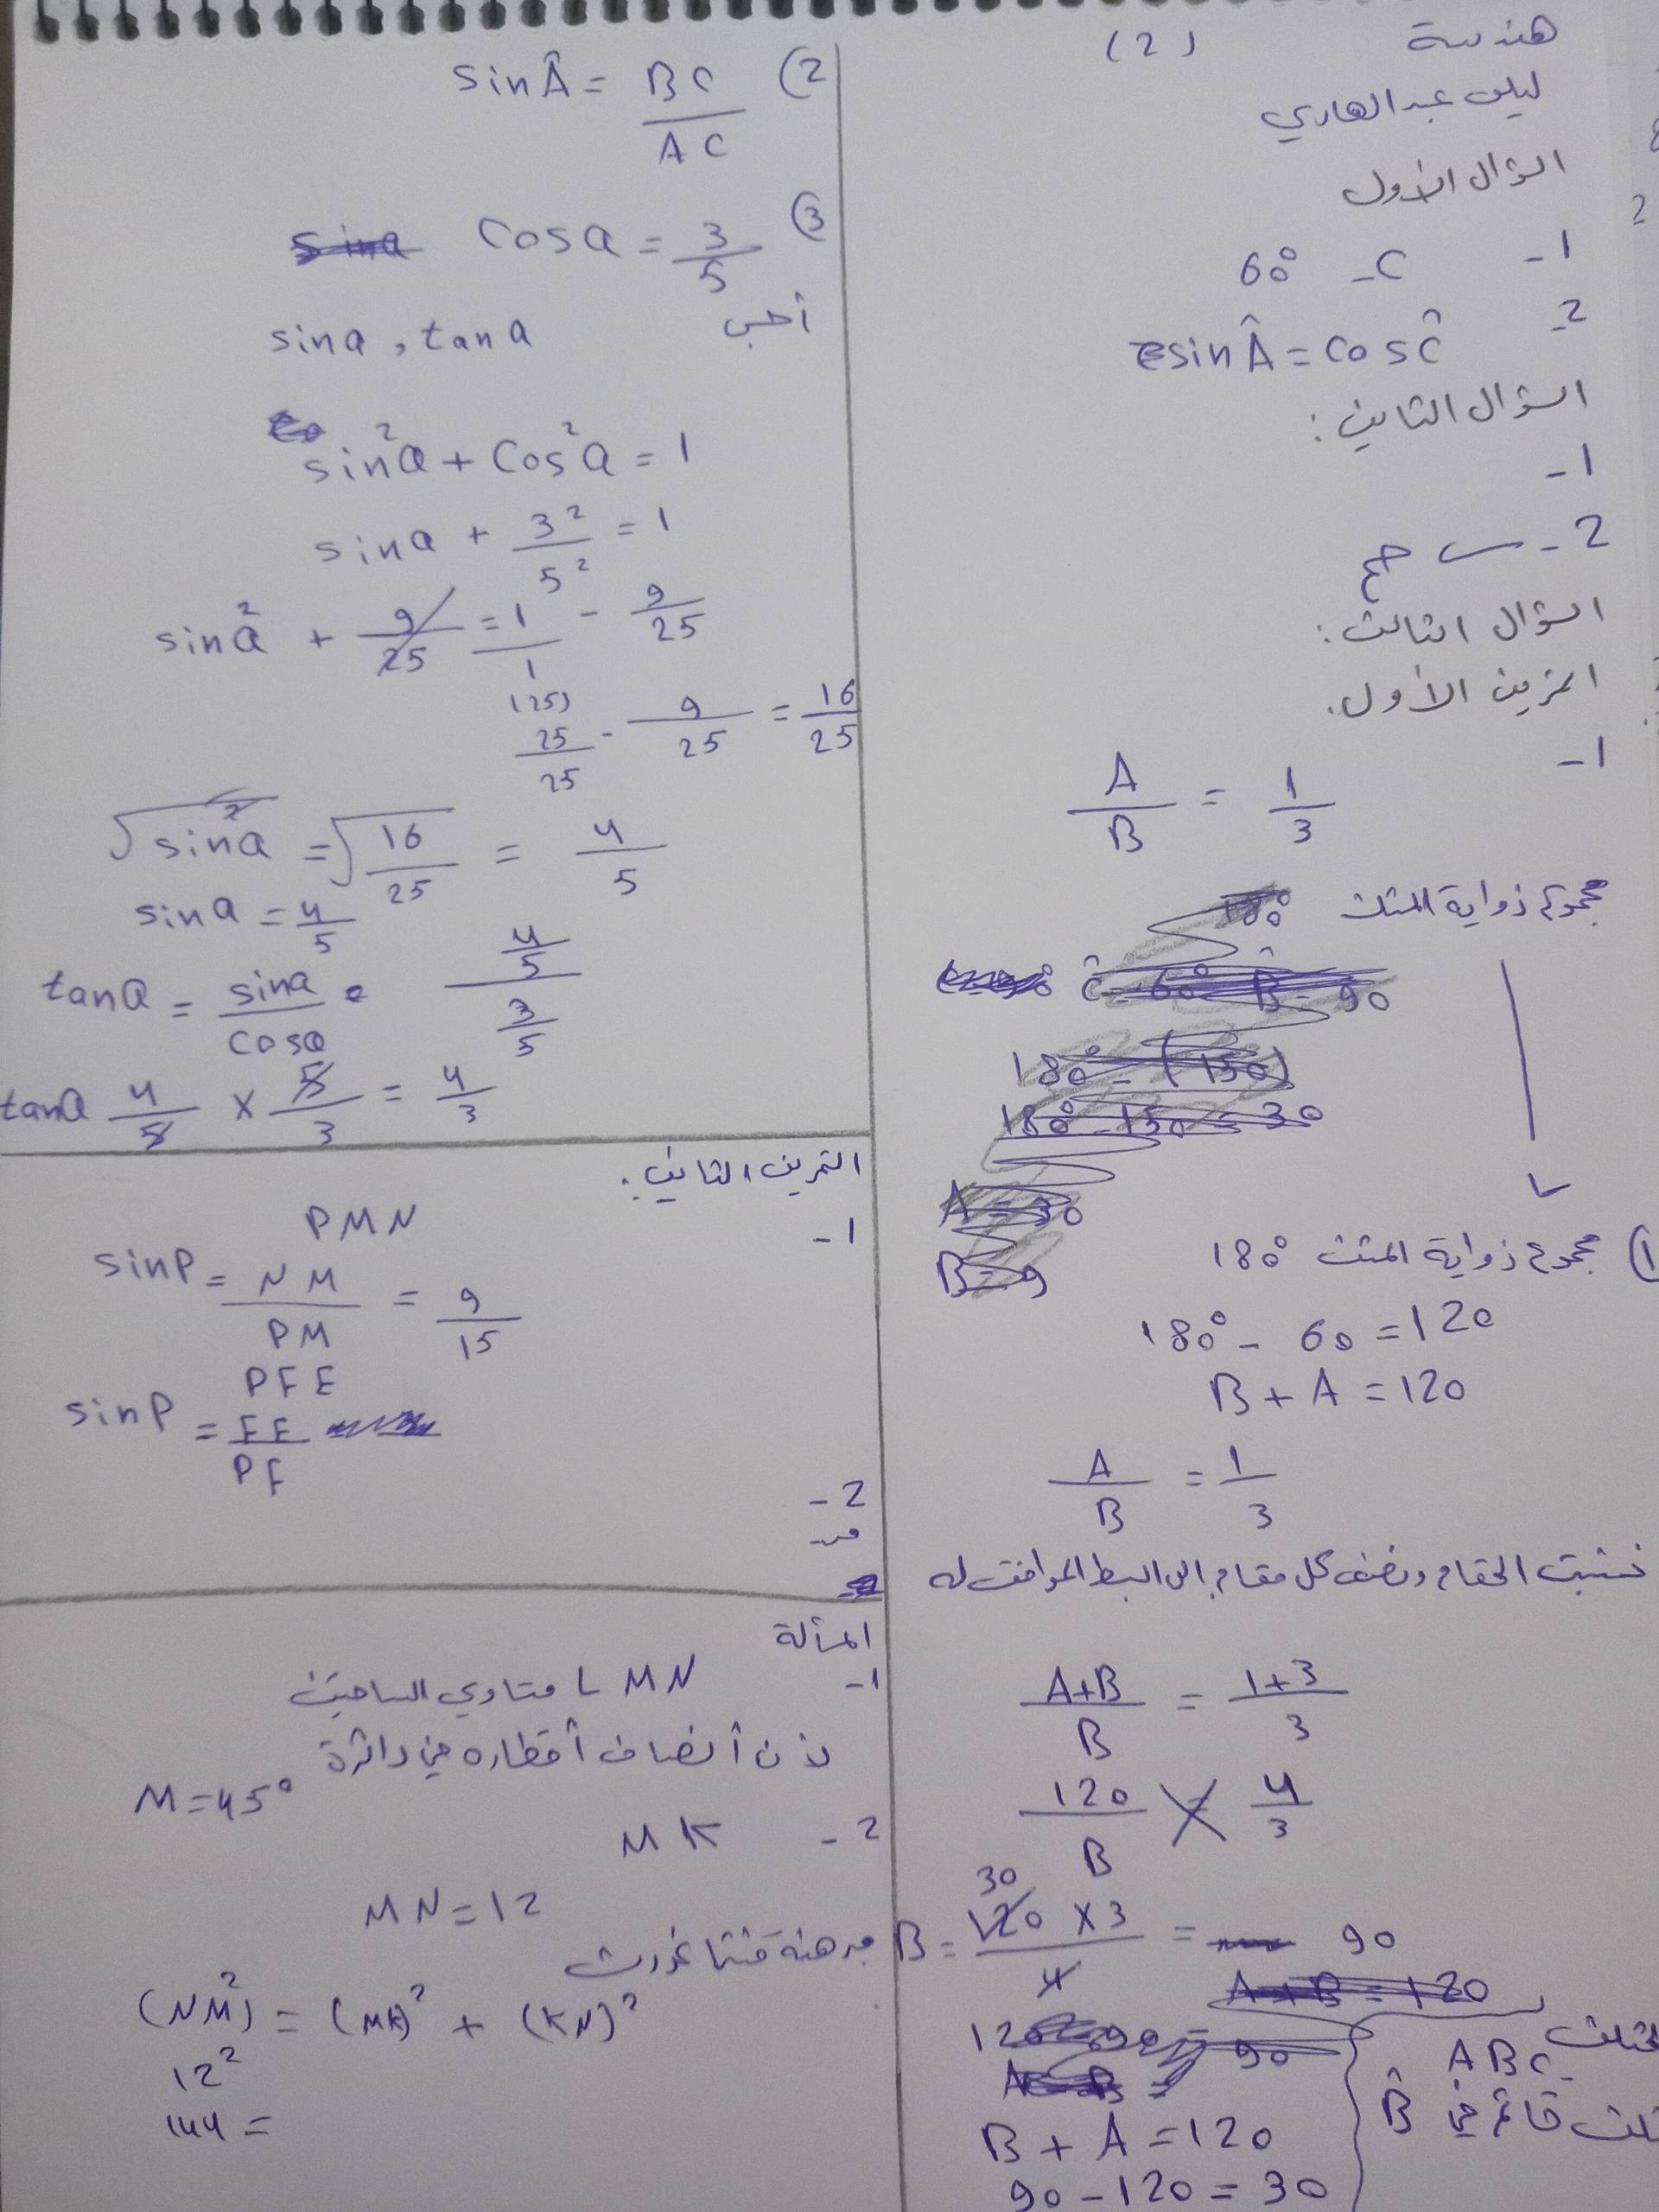 هندسة (2)
ليلى عبد الهادي
السؤال الأول
1- C- 60°
2- sin Â = cos Ĉ
السؤال الثاني:
1-
2- صح
السؤال الثالث:
التمرين الأول.
1-
A/B = 1/3
مجموع زواية المثلث
1) مجموع زواية المثلث 180°
180° - 60 = 120
B + A = 120
A/B = 1/3
نثبت المقام ونضيف كل مقام إلى البسط الموافق له
A+B/B = 1+3/3
120/B = 4/3
B = 120 × 3/4 = 90
30
B + A = 120
90 - 120 = 30
ABC
قائم في B̂
2) sin Â = BC/AC
3) cos a = 3/5
أحسب sin a , tan a
sin²a + cos²a = 1
sin a + 3²/5² = 1
sin²a + 9/25 = 1/1 - 9/25
(25)
25/25 - 9/25 = 16/25
√sin²a = √16/25 = 4/5
sin a = 4/5
tan a = sin a/cos a = 4/5 / 3/5
tan a 4/5 × 5/3 = 4/3
التمرين الثاني:
1- PMN
sin P = NM/PM = 9/15
PFE
sin P = FE/PF
2-
المسألة
1- L MN متساوي الساقين
لأن أنصاف أقطاره في دائرة
M = 45°
2- MK
MN = 12
مبرهنة فيثاغورث
(NM²) = (MK)² + (KN)²
12²
144 =